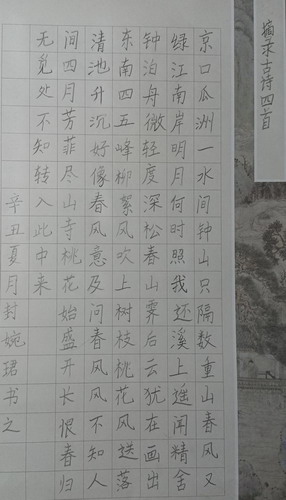 摘录古诗四首
京口瓜洲一水间钟山只隔数重山春风又
绿江南岸明月何时照我还溪上遥闻精舍
钟泊舟微轻度深松春山霁后云犹在画出
东南四五峰柳絮风吹上树枝桃花风送落
清池升沉好像春风意及问春风风不知人
间四月芳菲尽山寺桃花始盛开长恨春归
无觅处不知转入此中来
辛丑夏月封婉珺书之